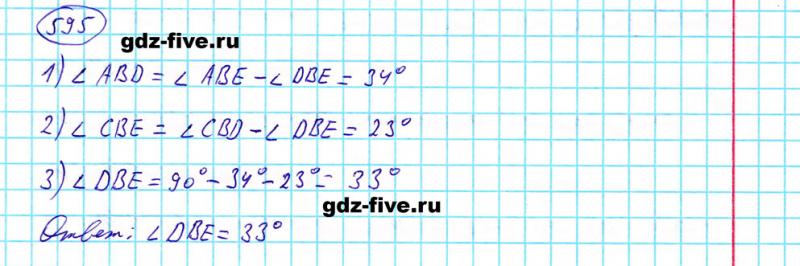 595
gdz-five.ru
1) ∠ ABD = ∠ ABE - ∠ DBE = 34°
2) ∠ CBE = ∠ CBD - ∠ DBE = 23°
3) ∠ DBE = 90° - 34° - 23° = 33°
gdz-five.ru
Ответ: ∠ DBE = 33°